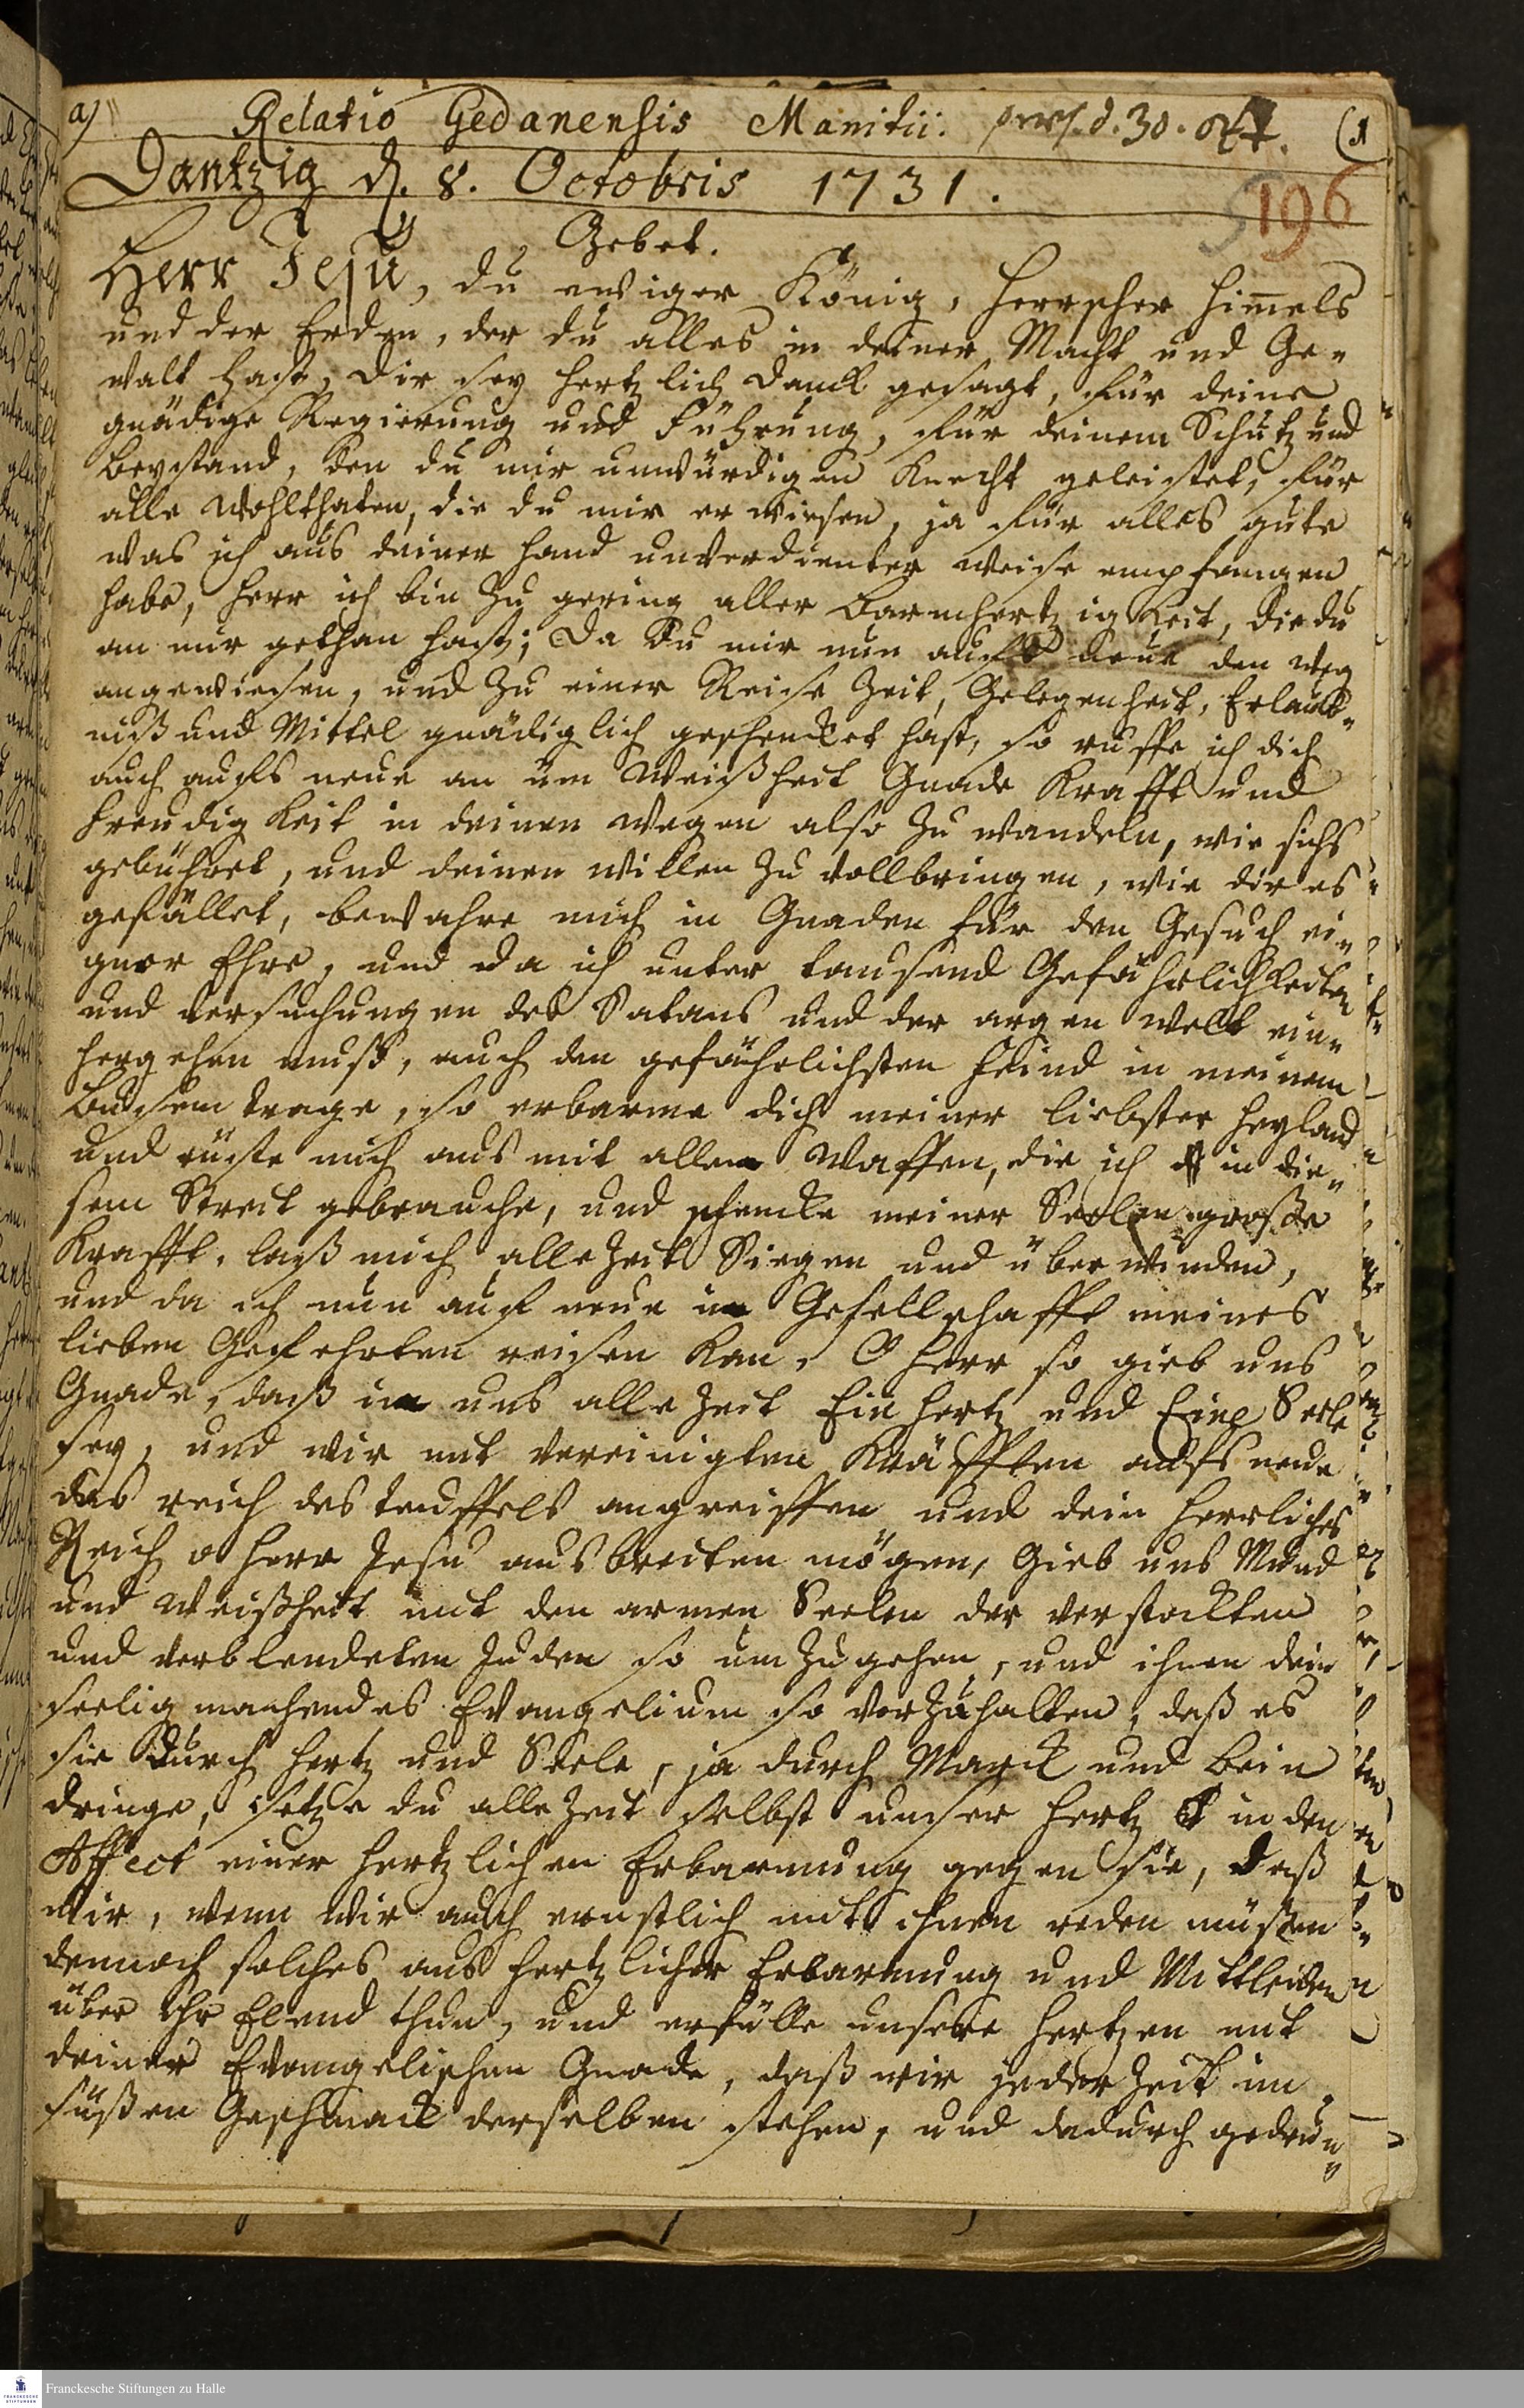 a) Relatio Gedanensis Manitii. præs. d. 30. oct. (1
Dantzig d. 8. Octobris 1731.
196
Gebet.
Herr Jesu, du ewiger König, Herrscher Him̅els
und der Erden, der du alles in deiner Macht und Ge-
walt hast, dir sey hertzlich Danck gesagt, für deine
gnädige Regierung und Führung, für deinem Schutz und
Beystand, den du mir unwürdigen Knecht geleistet, für
alle Wohlthaten, die du mir erwiesen, ja für alles gute
was ich aus deiner Hand unverdienter weise empfangen
habe, Herr ich bin zu gering aller Barmhertzigkeit, die du
an mir gethan hast; Da du mir nun aufs neue den weg
angewiesen, und zu einer Reise Zeit, Gelegenheit, Erlaub-
niß und Mittel gnädiglich geschencket hast, so ruffe ich dich
auch aufs neue an um Weißheit Gnade Krafft und
Freudigkeit in deinen wegen also zu wandeln, wie sichs
gebühret, und deinen willen zu vollbringen, wie dir es
gefället, bewahre mich in Gnaden für den Gesuch ei-
gner Ehre, und da ich unter tausend Gefährlichkeiten
und versuchungen des Satans und der argen welt ein-
hergehen muß, auch den gefährlichsten Feind in meinem
Busem trage, so erbarme dich meiner liebster Heyland
und rüste mich aus mit allen Waffen, die ich in die-
sem Streit gebrauche, und schencke meiner Seelen große
Krafft, laß mich allezeit Siegen und überwinden,
und da ich nun auf neue in Gesellschafft meines
lieben Gefehrten reisen kan, O Herr so gieb uns
Gnade, daß in uns alle Zeit Ein Hertz und Eine Seele
sey, und wir mit vereinigten Kräfften aufs neue
das reich des teuffels angreiffen und dein herrliches
Reich o Herr Jesu ausbreiten mögen, Gieb uns Mund
und Weißheit mit den armen Seelen der verstockten
und verblendeten Juden so umzugehen, und ihnen dein
seelig machendes Evangelium so vorzuhalten, daß es
sie durch Hertz und Seele, ja durch Marck und Bein
dringe, setze du alle Zeit selbst unser Hertz in den
Affect einer hertzlichen Erbarmung gegen sie, daß
wir, wenn wir auch ernstlich mit ihnen reden müßen
dennoch solches aus hertzlicher Erbarmung und Mittleiden
über Ihr Elend thun, und erfülle unsere Hertzen mit
deiner Evangelischen Gnade, daß wir jeder Zeit im
süßen Geschmack derselben stehen, und dadurch gedrun-
Franckesche Stiftungen zu Halle